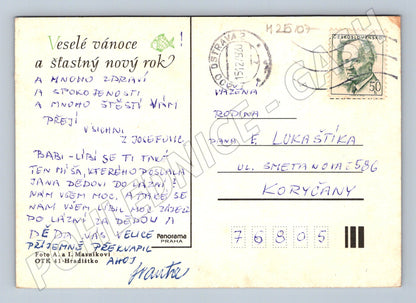 Veselé vánoce
a šťastný nový rok
A MNOHO ZDRAVÍ
A SPOKOJENOSTI
A MNOHO ŠTĚSTÍ VÁM
PŘEJÍ
VŠICHNI
Z JOSEFULIC
BABI-LÍBÍ SE TI TAKÉ
TEN MÍŠA, KTERÉHO POSLALA
JANA DĚDOVI DO LÁZNÍ?
NÁM VŠEM MOC. A TAKÉ SE
NÁM VŠEM LÍBIL MOC ZÁJEZD
DO LÁZNÍ ZA DĚDOU A
DĚDA NÁS VELICE
PŘÍJEMNĚ PŘEKVAPIL
AHOJ
Foto A. a I. Marníkovi
OTK 41 Hradištko
Panorama
PRAHA
H25107
OSTRAVA 2
ČESKOSLOVENSKO
50
VÁŽENÁ
RODINA
PANA F. LUKAŠTÍKA
UL. SMETANOVA č 586
KORYČANY
76805
POHLEDNICE - GALI